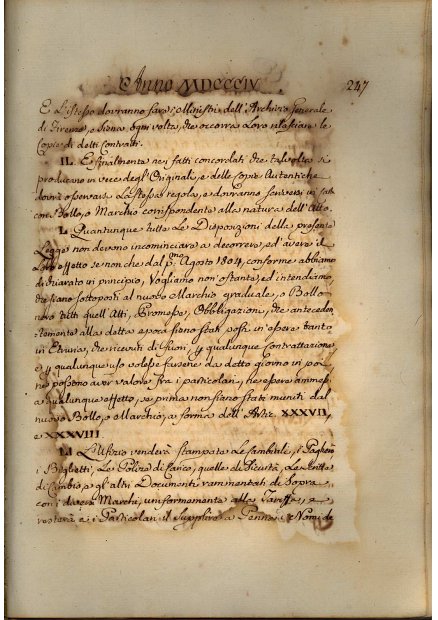 Anno MDCCCIV 247
E L'istesso dovranno fare i Ministri dell'Archivio Generale
di Firenze, e Siena ogni volta, che occorra Loro rilasciare le
Copie di detti Contratti.
IL. E finalmente nei fatti concordati che talvolta si
producano in vece degl'Originali, e delle Copie Autentiche
dovrà osservarsi la stessa regola, e dovranno scriversi in Carta
con Bollo, o Marchio corrispondente alla natura dell'Atto.
L. Quantunque tutte Le Disposizioni della presente
Legge non devono incominciare a decorrere, ed avere il
Loro effetto se non che dal p.mo Agosto 1804, conforme abbiamo
dichiarato in principio, Vogliamo non ostante, ed intendiamo
che siano sottoposti al nuovo Marchio graduale, o Bollo
novo tutti quell'Atti, Promesse, Obbligazioni, che anteceden
temente alla detta epoca sieno stati posti in essere tanto
in Etruria, che ricevuti di fuori, p qualunque Contrattazione
e p qualunque uso volesse farsene da detto giorno in poi
ne possono aver valore fra i particolari, ne essere ammessi
a qualunque effetto, se prima non sieno stati muniti del
nuovo Bollo, o Marchio, a forma dell'Artic. XXXVII,
e XXXVIII
LI L'Ufizio venderà stampate Le Cambiali, i Pagherò
i Biglietti, Le Polize di Carico, quelle di Sicurtà, Le
di Cambio, e gl'altri Documenti rammentati di Sopra,
con i diversi Marchi, uniformemente alla Tariffa, e
resterà a i Particolari il Supplire a Penna i Nomi de